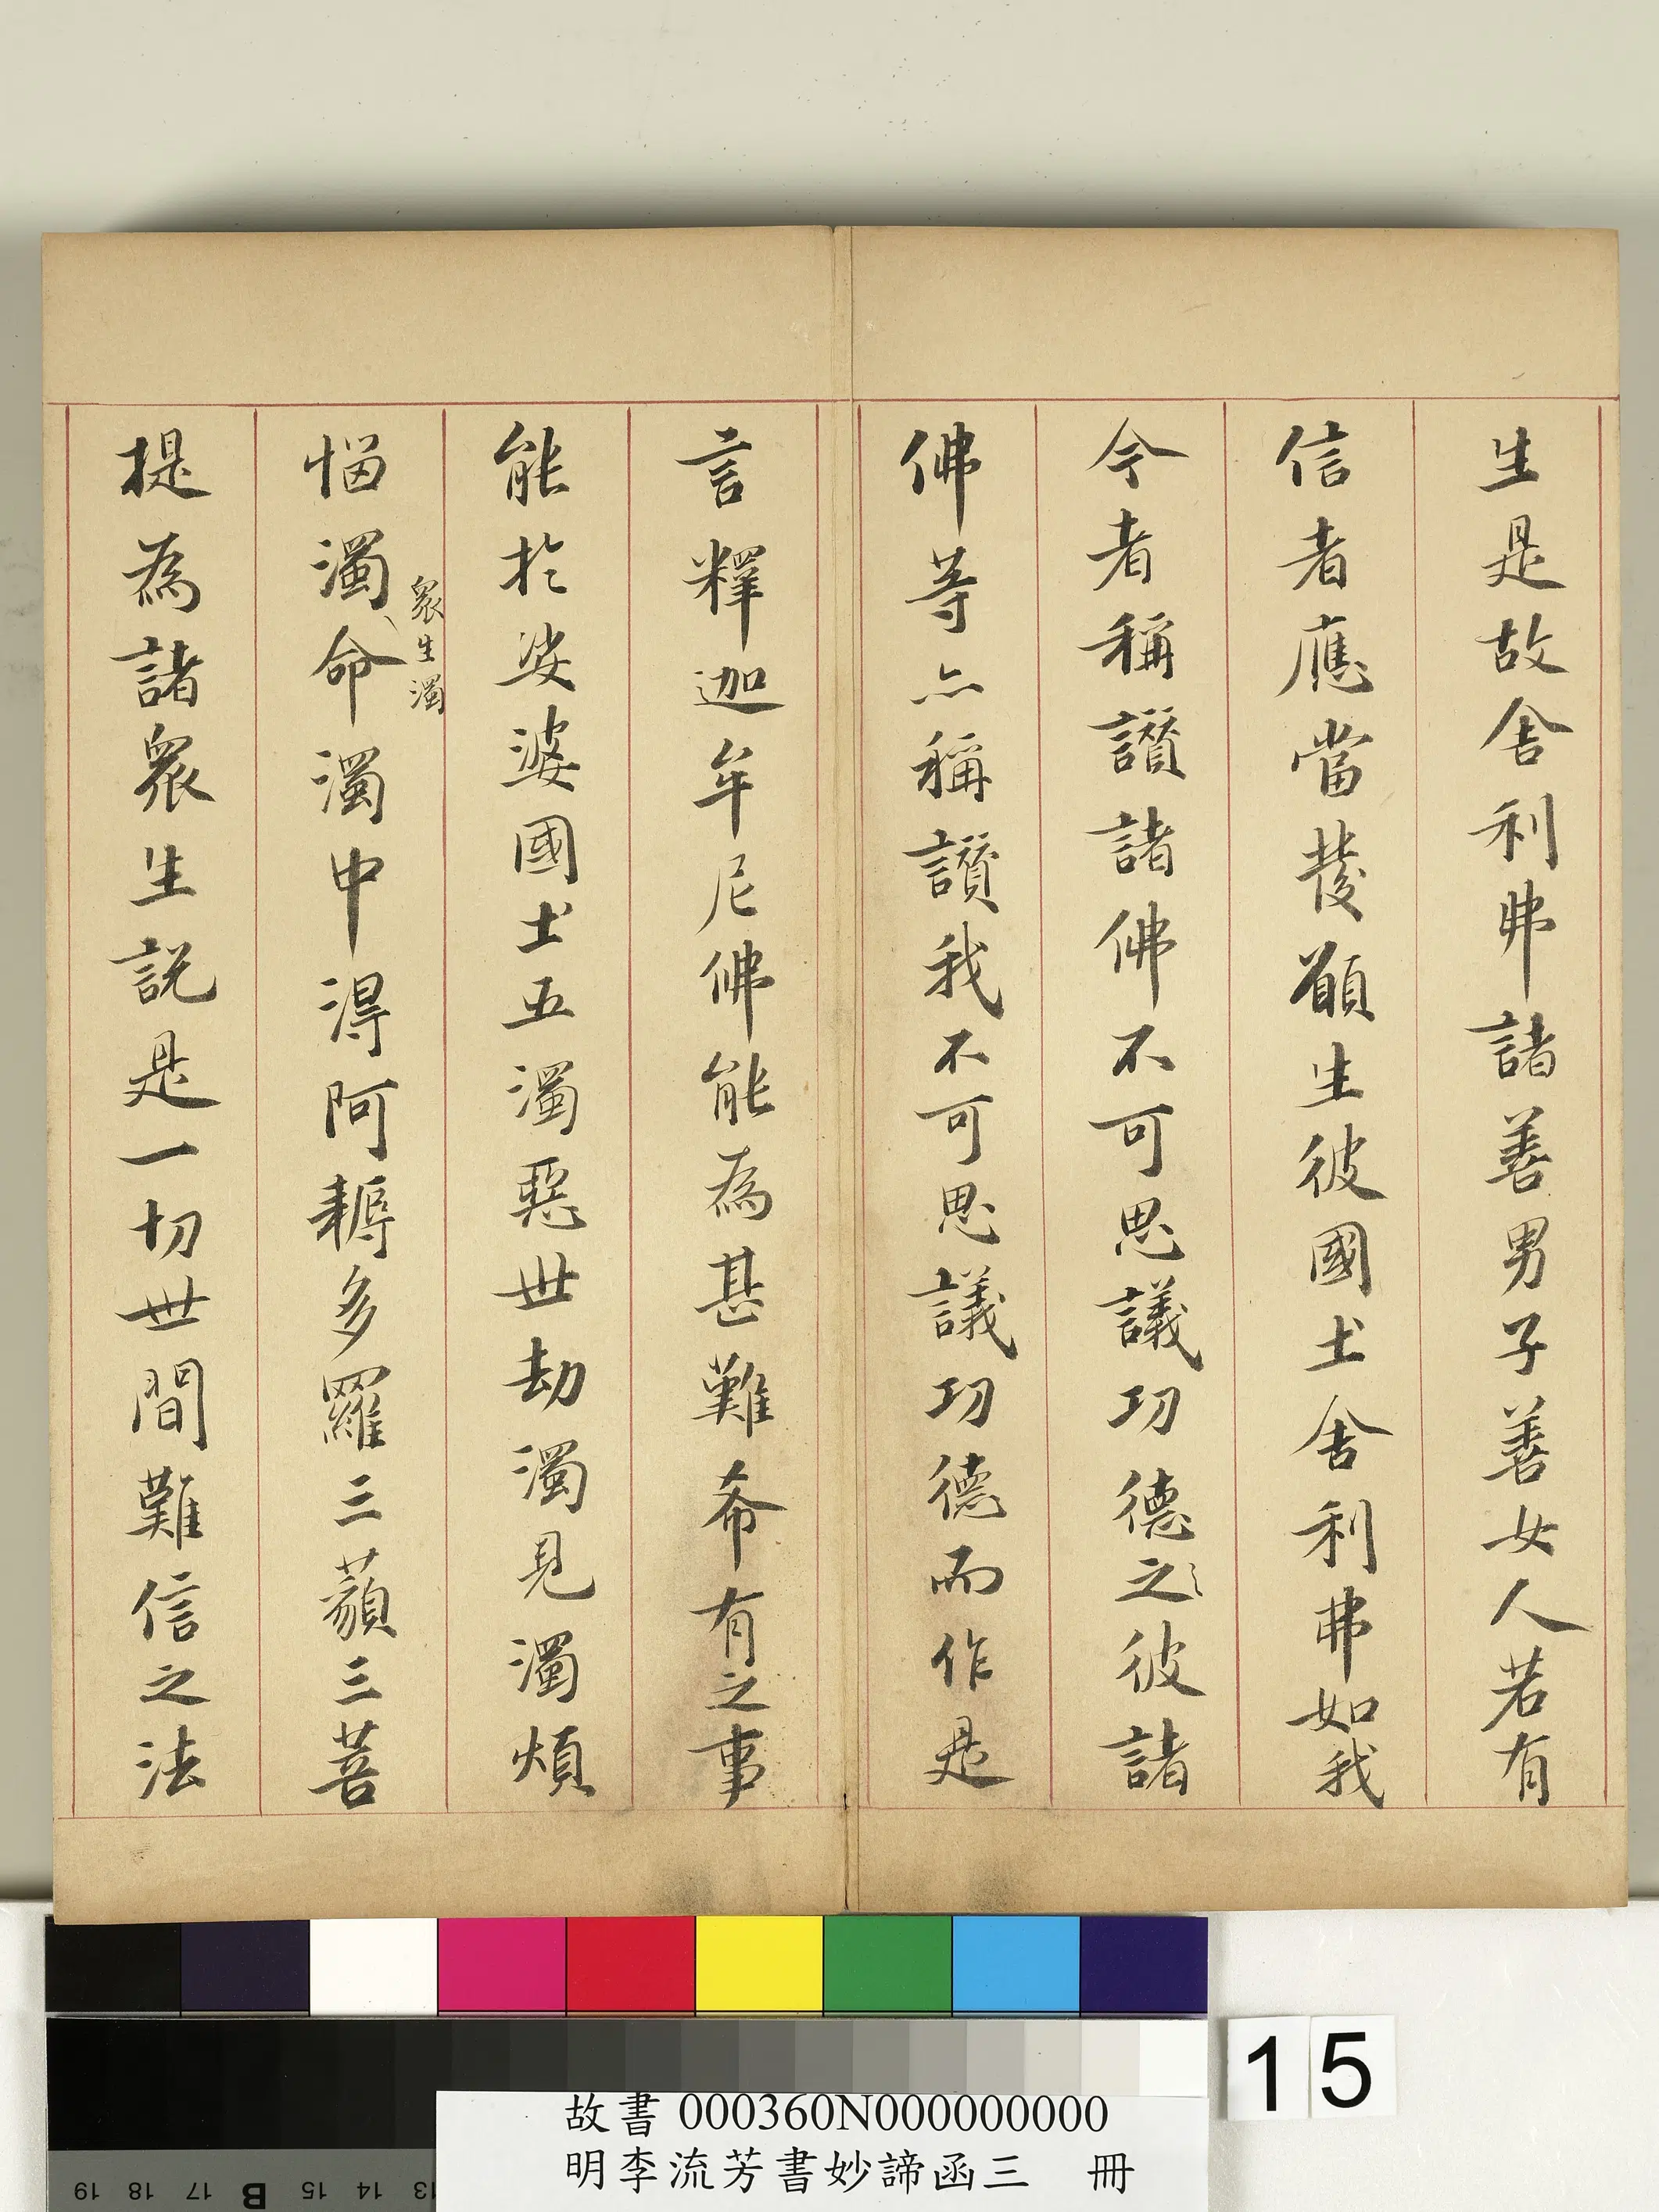 生是故舍利弗諸善男子善女人若有
信者應當發願生彼國土舍利弗如我
今者稱讚諸佛不可思議功德之彼諸
佛等亦稱讚我不可思議功德而作是
言釋迦牟尼佛能為甚難希有之事
能於娑婆國土五濁惡世劫濁見濁煩
惱濁命濁中得阿耨多羅三藐三菩
眾生濁
提為諸眾生說是一切世間難信之法
15
故書 000360N000000000
明李流芳書妙諦函三 冊
19 18 17 B 15 14 13